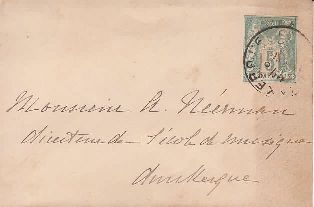 Monsieur A. Néerman
directeur de l'école de musique
Dunkerque